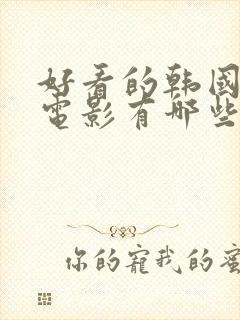 好看的韩国
电影有哪些
你的宠我的蜜